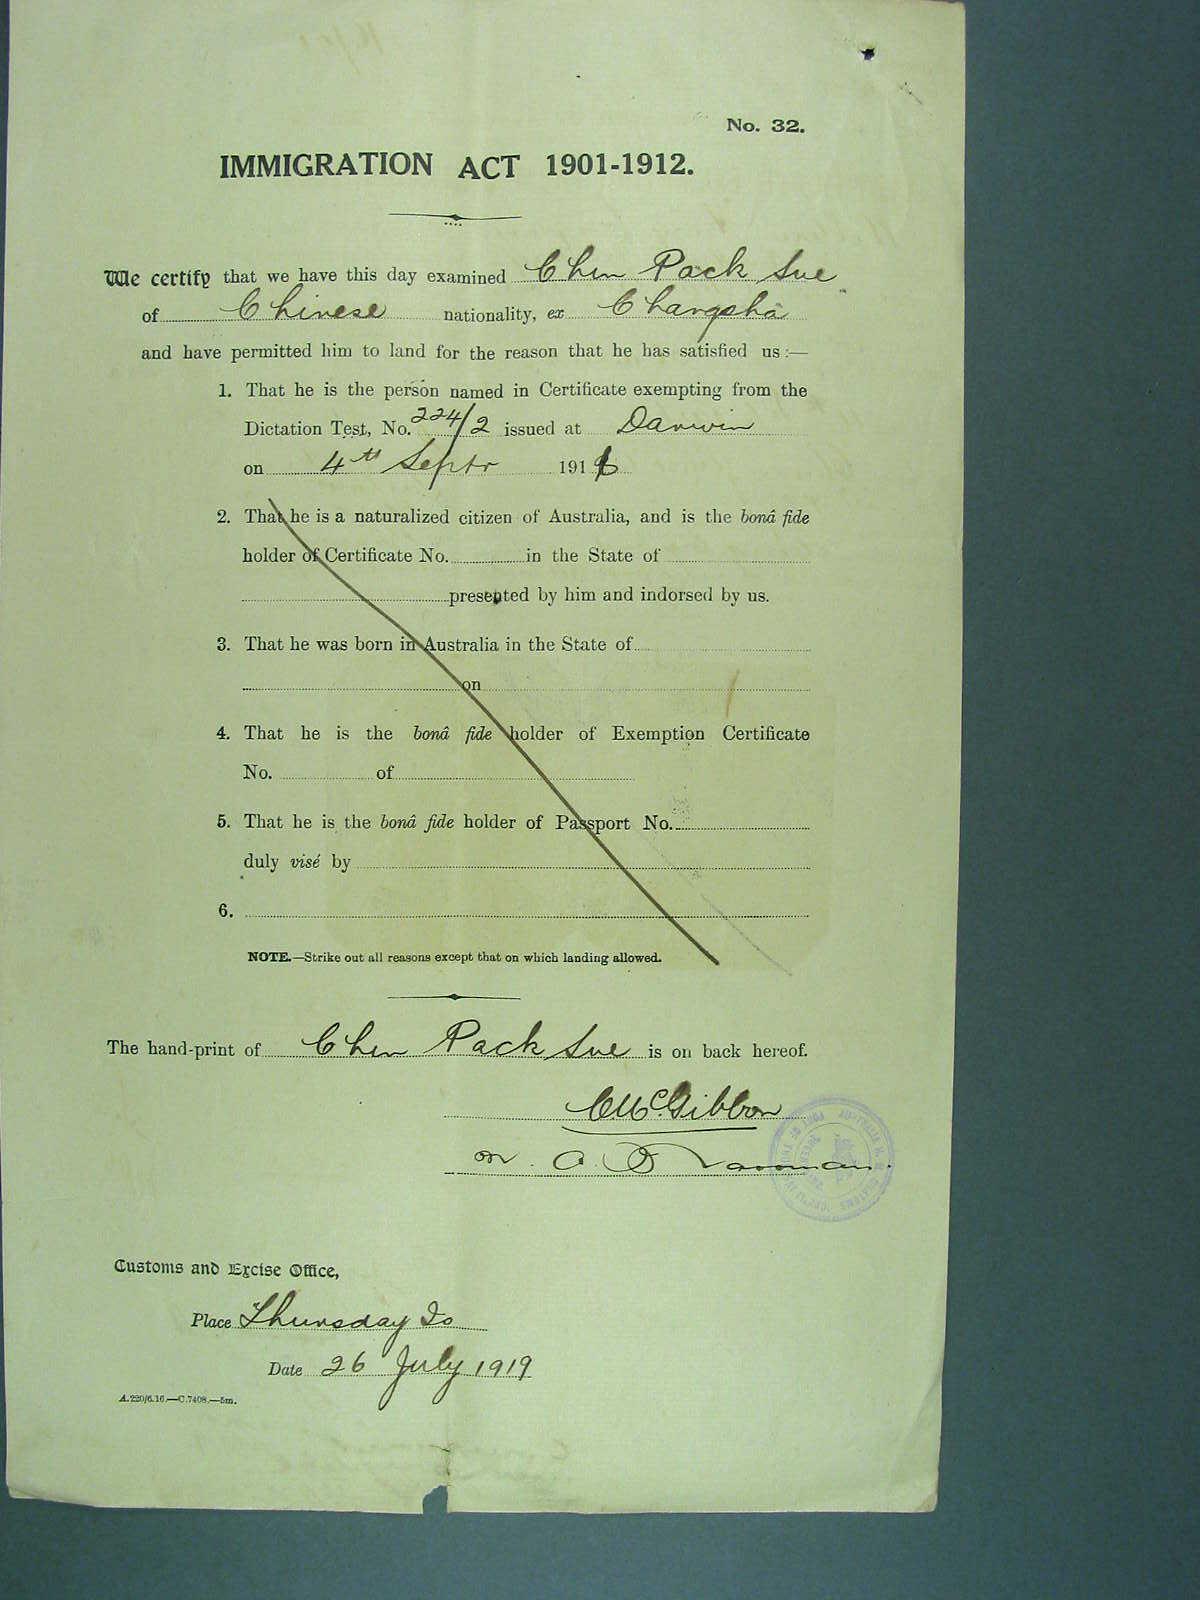 No. 32.
IMMIGRATION ACT 1901-1912.
We certify that we have this day examined Chen Pack Sue
of Chinese nationality, ex Changsha
and have permitted him to land for the reason that he has satisfied us :—
1. That he is the person named in Certificate exempting from the
Dictation Test, No. 224/2 issued at Darwin
on 4th Septr 191
2. That he is a naturalized citizen of Australia, and is the bonâ fide
holder of Certificate No. in the State of
presented by him and indorsed by us.
3. That he was born in Australia in the State of
on
4. That he is the bonâ fide holder of Exemption Certificate
No. of
5. That he is the bonâ fide holder of Passport No.
duly visé by
6.
NOTE.—Strike out all reasons except that on which landing allowed.
The hand-print of Chen Pack Sue is on back hereof.
C McGibbon
Customs and Excise Office,
Place Thursday Is
Date 26 July 1919
A.220/6.16.—C.7408.—5m.